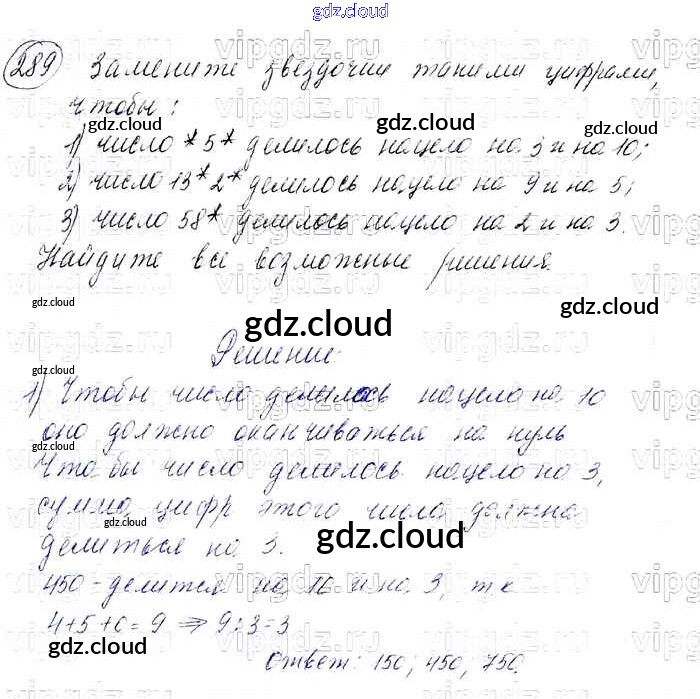 gdz.cloud
289 Замените звездочки такими цифрами,
чтобы:
gdz.cloud gdz.cloud
1) число *5* делилось нацело на 3 и на 10;
2) число 13*2* делилось нацело на 9 и на 5;
3) число 58* делилось нацело на 2 и на 3.
Найдите все возможные решения.
gdz.cloud gdz.cloud
gdz.cloud
Решение:
1) Чтобы число делилось нацело на 10
оно должно оканчиваться на нуль
gdz.cloud
Чтобы число делилось нацело на 3,
сумма цифр этого числа должна
gdz.cloud gdz.cloud
делиться на 3.
450 - делится на 10 и на 3, т к
4+5+0=9 ⇒ 9:3=3
gdz.cloud gdz.cloud
Ответ: 150; 450; 750.